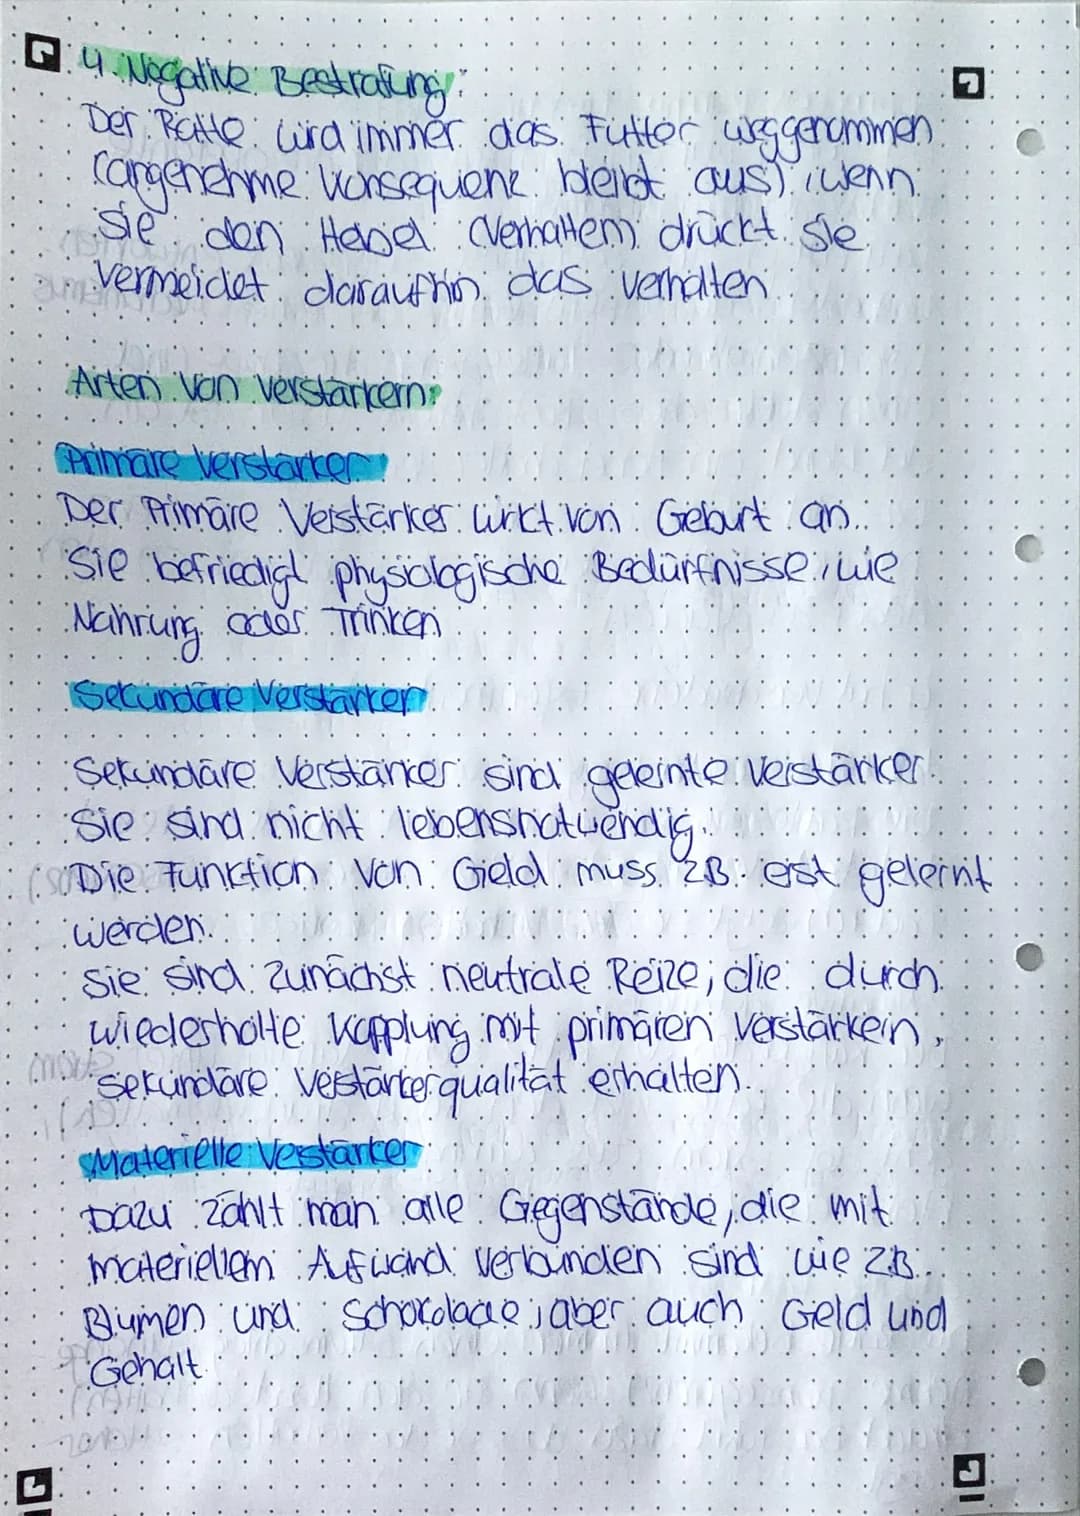 4. Negative Bestrafung:
Der Ratte wird immer das Futter weggenommen
(angenehme Konsequenz bleibt aus), wenn
sie den Hebel (Verhalten) drückt. Sie
vermeidet daraufhin das Verhalten
Arten von Verstärkern:
Primäre Verstärker
Der Primäre Verstärker wirkt von Geburt an.
Sie befriedigt physiologische Bedürfnisse, wie
Nahrung oder Trinken
Sekundäre Verstärker
Sekundäre Verstärker sind gelernte Verstärker.
Sie sind nicht lebensnotwendig.
Die Funktion von Geld muss z.B. erst gelernt
werden.
Sie sind zunächst neutrale Reize, die durch
wiederholte Kopplung mit primären Verstärkern,
sekundäre Verstärkerqualität erhalten.
Materielle Verstärker
Dazu zählt man alle Gegenstände, die mit
materiellem Aufwand verbunden sind wie z.B.
Blumen und Schokolade, aber auch Geld und
Gehalt